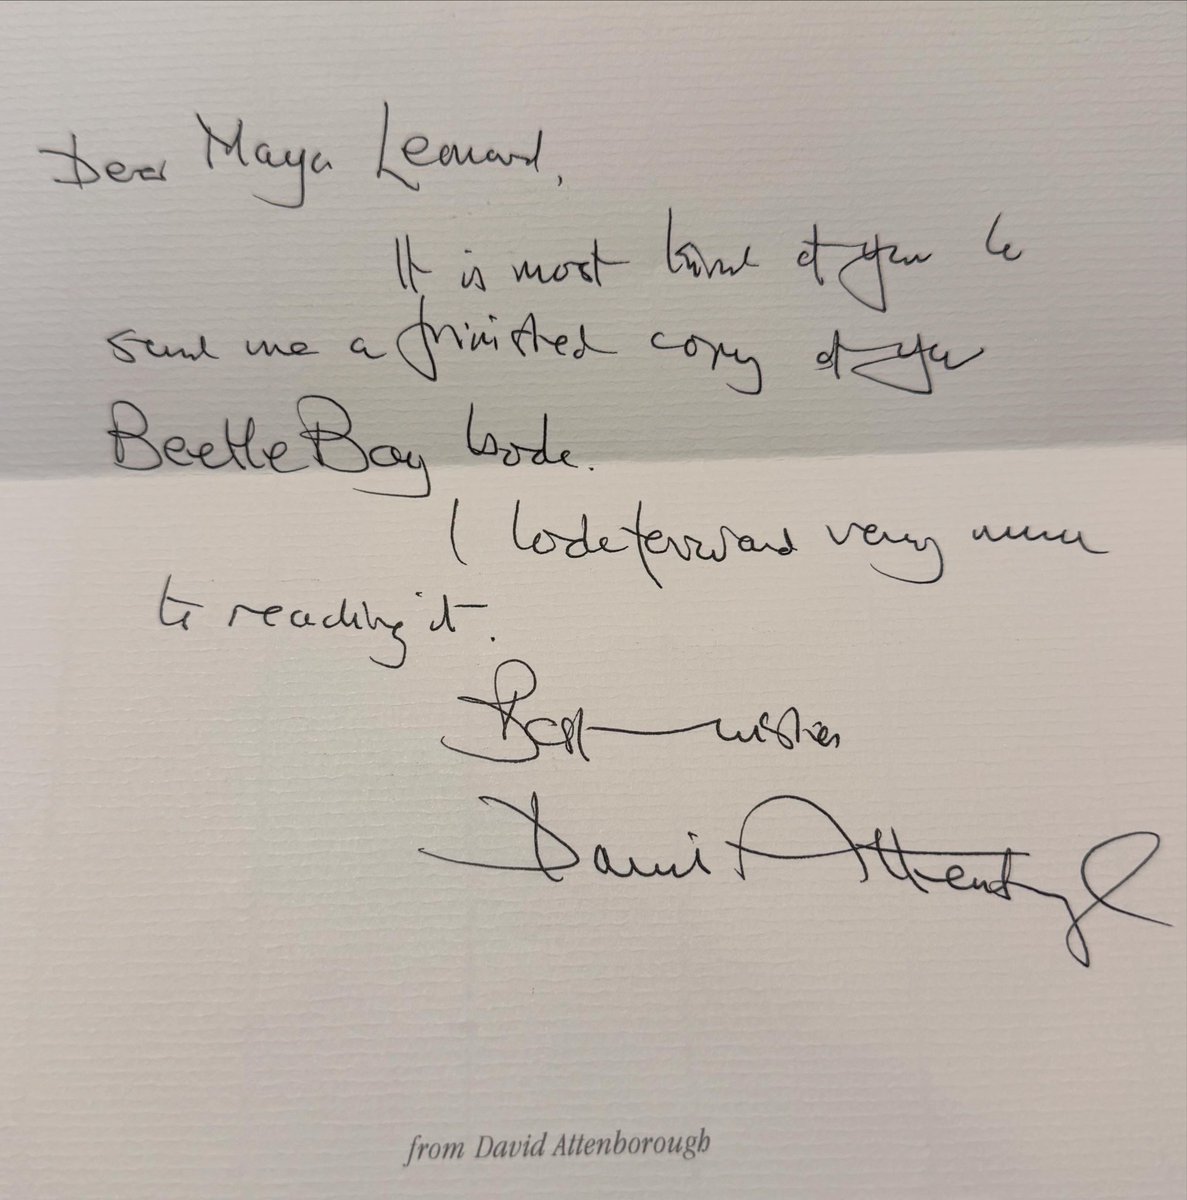 Dear Maya Leonard,
It is most kind of you to
send me a finished copy of your
Beetle Boy book.
I look forward very much
to reading it.
Best wishes
David Attenborough
from David Attenborough